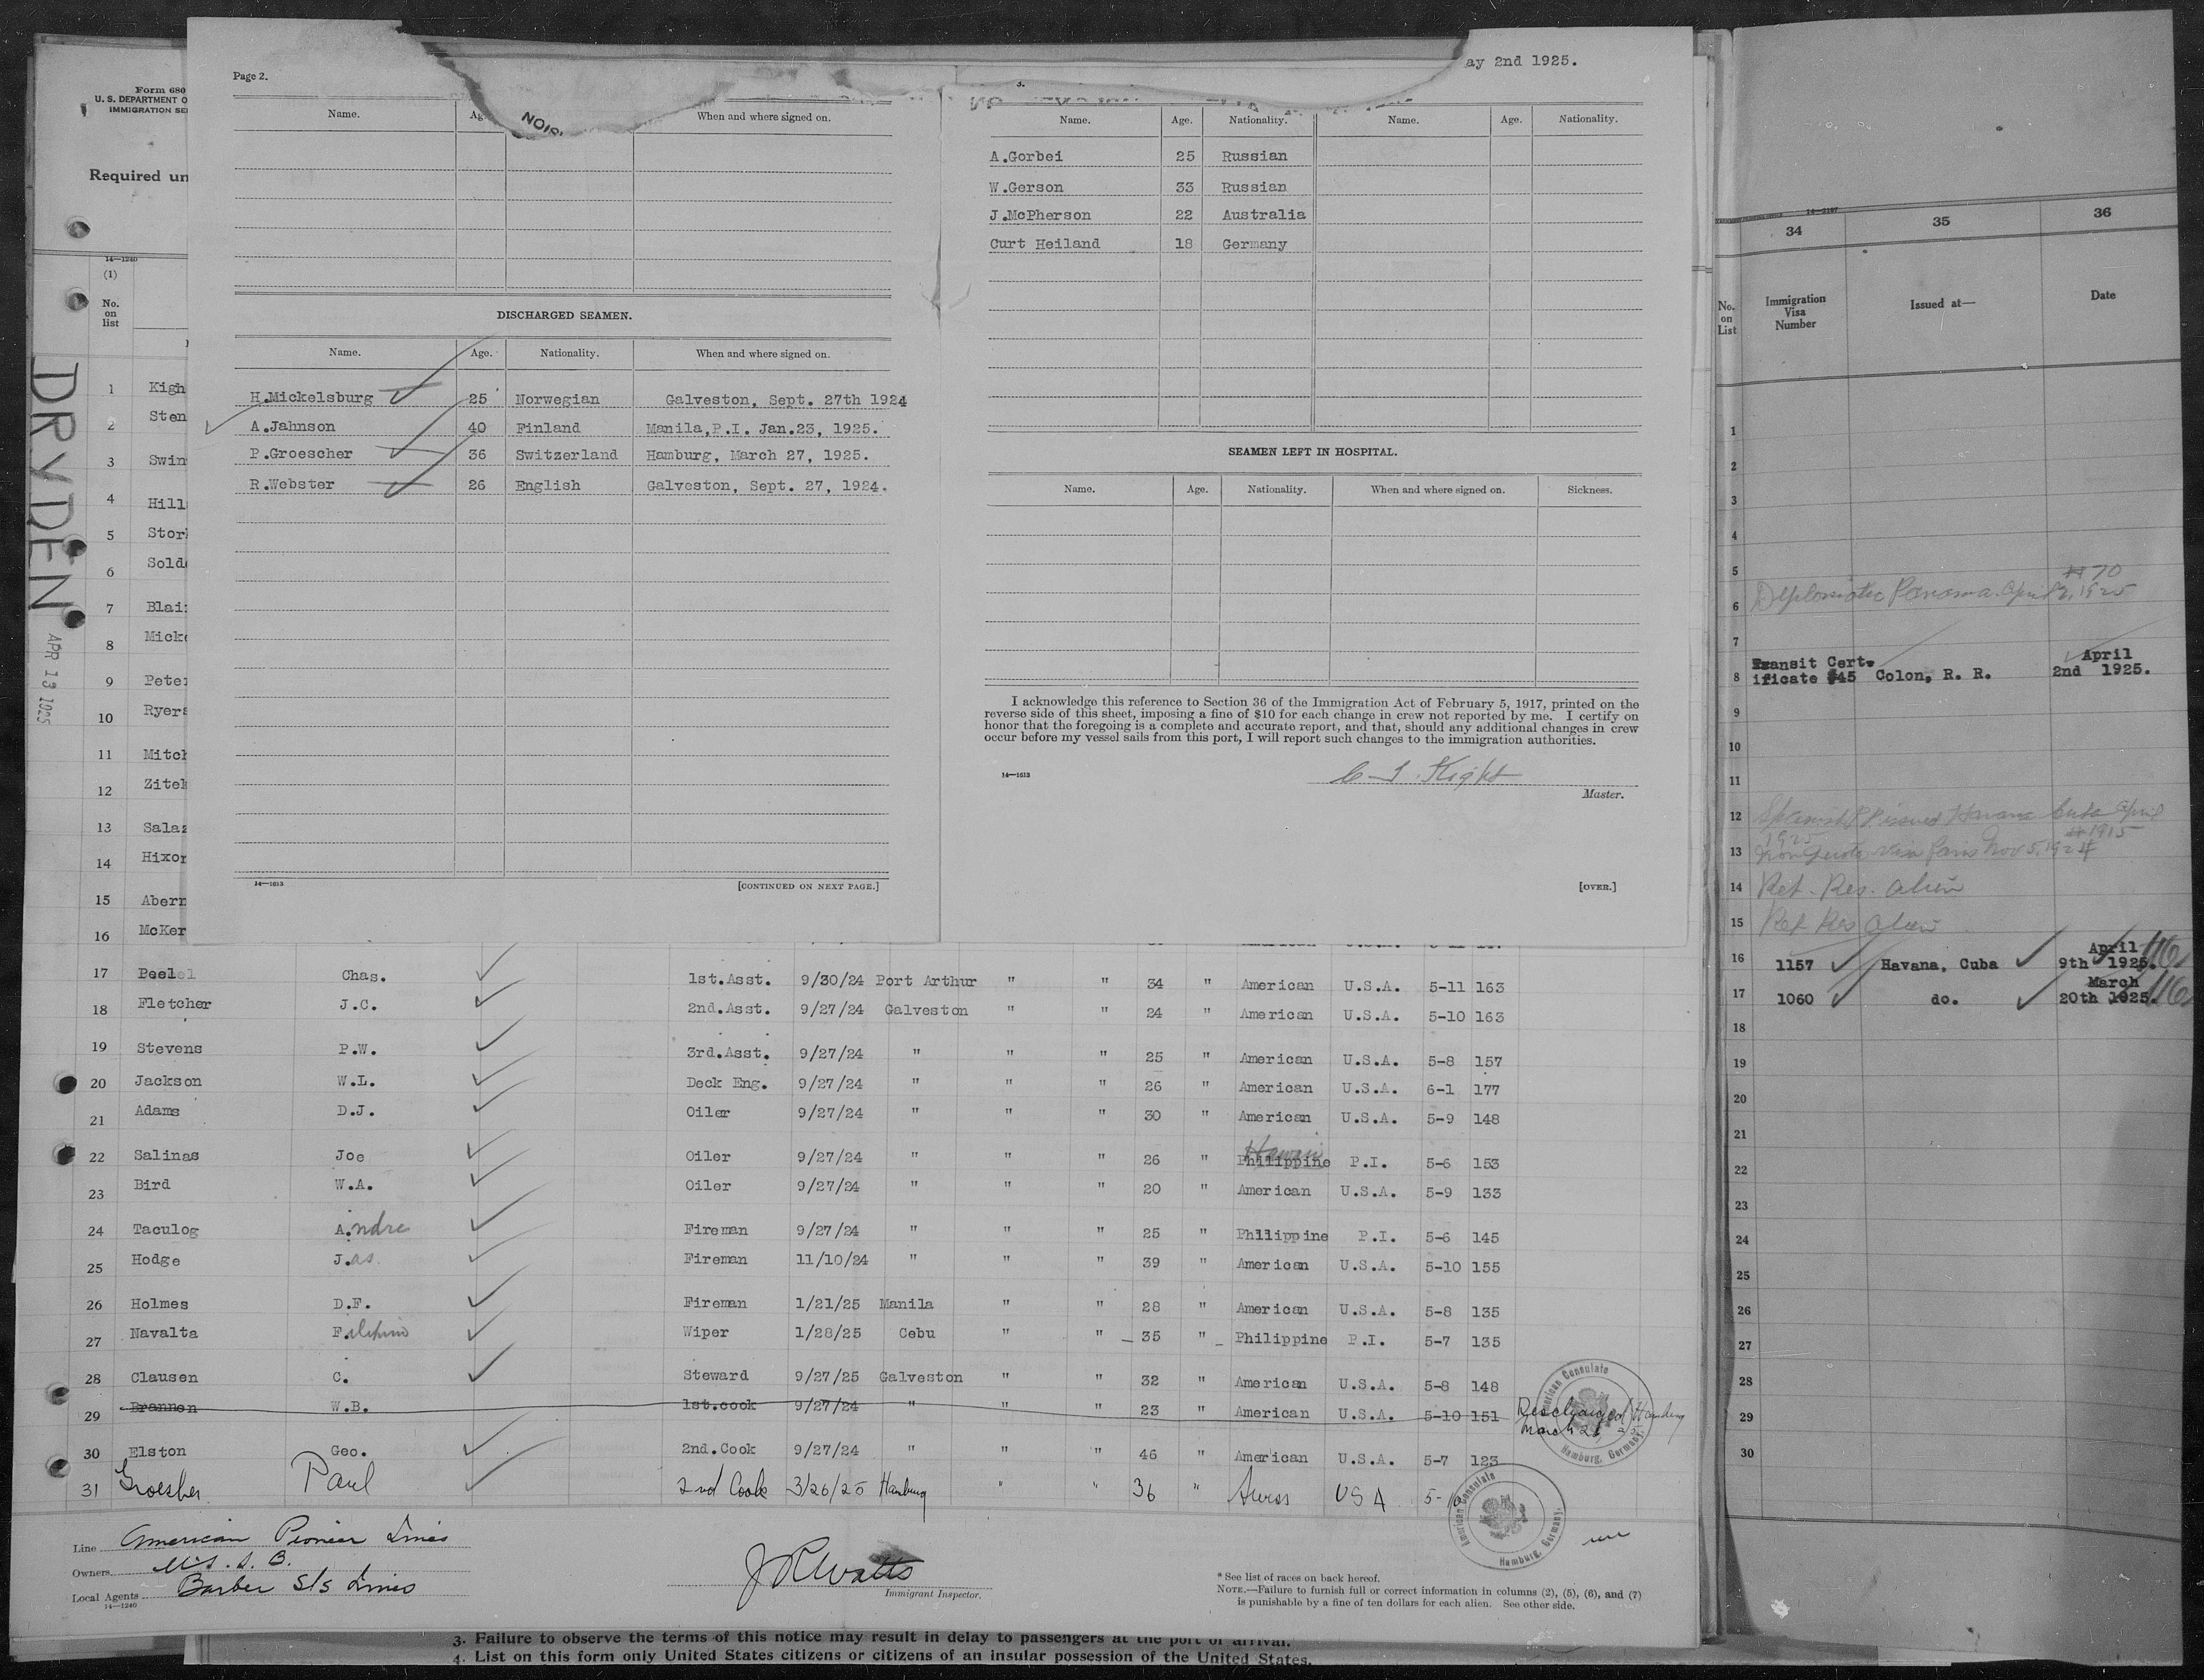 Form 680
U. S. DEPARTMENT O
IMMIGRATION SE
Required un
14—1240
(1)
No.
on
list
DRYDEN
APR 13 1925
1 Kigh
2 Sten
3 Swin
4 Hill
5 Stor
6 Sold
7 Blai
8 Mick
9 Pete
10 Ryers
11 Mitch
12 Zitek
13 Salaz
14 Hixor
15 Abern
16 McKer
Page 2.
Name. Ag When and where signed on.
DISCHARGED SEAMEN.
Name. Age. Nationality. When and where signed on.
H.Mickelsburg 25 Norwegian Galveston, Sept. 27th 1924
A.Jahnson 40 Finland Manila,P.I. Jan.23, 1925.
P.Groescher 36 Switzerland Hamburg, March 27, 1925.
R.Webster 26 English Galveston, Sept. 27, 1924.
14—1613 [CONTINUED ON NEXT PAGE.]
ay 2nd 1925.
3.
Name. Age. Nationality. Name. Age. Nationality.
A.Gorbei 25 Russian
W.Gerson 33 Russian
J.McPherson 22 Australia
Curt Heiland 18 Germany
SEAMEN LEFT IN HOSPITAL.
Name. Age. Nationality. When and where signed on. Sickness.
I acknowledge this reference to Section 36 of the Immigration Act of February 5, 1917, printed on the
reverse side of this sheet, imposing a fine of $10 for each change in crew not reported by me. I certify on
honor that the foregoing is a complete and accurate report, and that, should any additional changes in crew
occur before my vessel sails from this port, I will report such changes to the immigration authorities.
14—1613
Kight
Master.
[OVER.]
17 Peelel Chas. 1st.Asst. 9/30/24 Port Arthur " " 34 " American U.S.A. 5-11 163
18 Fletcher J.C. 2nd.Asst. 9/27/24 Galveston " " 24 " American U.S.A. 5-10 163
19 Stevens P.W. 3rd.Asst. 9/27/24 " " " 25 " American U.S.A. 5-8 157
20 Jackson W.L. Deck Eng. 9/27/24 " " " 26 " American U.S.A. 6-1 177
21 Adams D.J. Oiler 9/27/24 " " " 30 " American U.S.A. 5-9 148
22 Salinas Joe Oiler 9/27/24 " " " 26 " Philippine P.I. 5-6 153
23 Bird W.A. Oiler 9/27/24 " " " 20 " American U.S.A. 5-9 133
24 Taculog A.ndre Fireman 9/27/24 " " " 25 " Philippine P.I. 5-6 145
25 Hodge J.as. Fireman 11/10/24 " " " 39 " American U.S.A. 5-10 155
26 Holmes D.F. Fireman 1/21/25 Manila " " 28 " American U.S.A. 5-8 135
27 Navalta F. Wiper 1/28/25 Cebu " " 35 " Philippine P.I. 5-7 135
28 Clausen C. Steward 9/27/25 Galveston " " 32 " American U.S.A. 5-8 148
29 Brannen W.B. 1st.cook 9/27/24 " " 23 " American U.S.A. 5-10 151 Discharged Hamburg
March 21
American Consulate
Hamburg, Germany.
30 Elston Geo. 2nd.Cook 9/27/24 " " " 46 " American U.S.A. 5-7 123
31 Paul 2nd Cook 3/26/25 Hamburg " " 36 " Swiss USA 5-10
American Consulate
Hamburg, Germany.
Line American Pioneer Lines
Owners U.S.S.B.
Local Agents Barber S/S Lines
14—1240
J R Watts
Immigrant Inspector.
* See list of races on back hereof.
NOTE.—Failure to furnish full or correct information in columns (2), (5), (6), and (7)
is punishable by a fine of ten dollars for each alien. See other side.
3. Failure to observe the terms of this notice may result in delay to passengers at the port of arrival.
4. List on this form only United States citizens or citizens of an insular possession of the United States.
34 35 36
No.
on
List
Immigration
Visa
Number
Issued at—
Date
1
2
3
4
5
6 Diplomatic Panama April 2, 1925
#70
7
8 Transit Cert-
ificate #45 Colon, R. R. April
2nd 1925.
9
10
11
12 Havana Cuba April
1925
13 Non Quota Visa Paris Nov 5, 1924
#1915
14 Ret. Res. alien
15 Ret Res alien
16 1157 Havana, Cuba April
9th 1925.
17 1060 do. March
20th 1925.
18
19
20
21
22
23
24
25
26
27
28
29
30